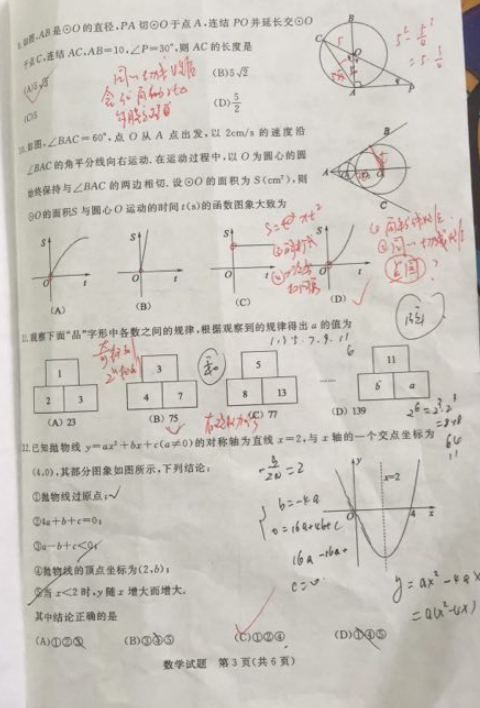 9.如图,AB是⊙O的直径,PA切⊙O于点A,连结PO并延长交⊙O
于点C,连结AC,AB=10,∠P=30°,则AC的长度是
(A)5√3
(B)5√2
(C)5
(D)5/2
B
C
5
O
A
P
10.如图,∠BAC=60°,点O从A点出发,以2cm/s的速度沿
∠BAC的角平分线向右运动.在运动过程中,以O为圆心的圆
始终保持与∠BAC的两边相切.设⊙O的面积为S(cm²),则
⊙O的面积S与圆心O运动的时间t(s)的函数图象大致为
B
A
C
S
O
t
(A)
S
O
t
(B)
S
O
t
(C)
S
O
t
(D)
S=
πt²
11.观察下面“品”字形中各数之间的规律,根据观察到的规律得出a的值为
1, 3, 5, 7, 9, 11
6
1
2 3
3
4 7
5
8 13
……
11
b a
(A) 23
(B) 75
(C) 77
(D) 139
2⁶=2³·2³
=8×8
64
11
12.已知抛物线y=ax²+bx+c(a≠0)的对称轴为直线x=2,与x轴的一个交点坐标为
(4,0),其部分图象如图所示,下列结论:
①抛物线过原点;
②4a+b+c=0;
③a-b+c<0;
④抛物线的顶点坐标为(2,b);
⑤当x<2时,y随x增大而增大.
其中结论正确的是
(A)①②③
(B)③④⑤
(C)①②④
(D)①④⑤
-b/2a=2
b=-4a
0=16a+4b+c
c=0
y
x=2
O
4
x
y=ax²-4ax
=a(x²-4x)
数学试题 第3页(共6页)